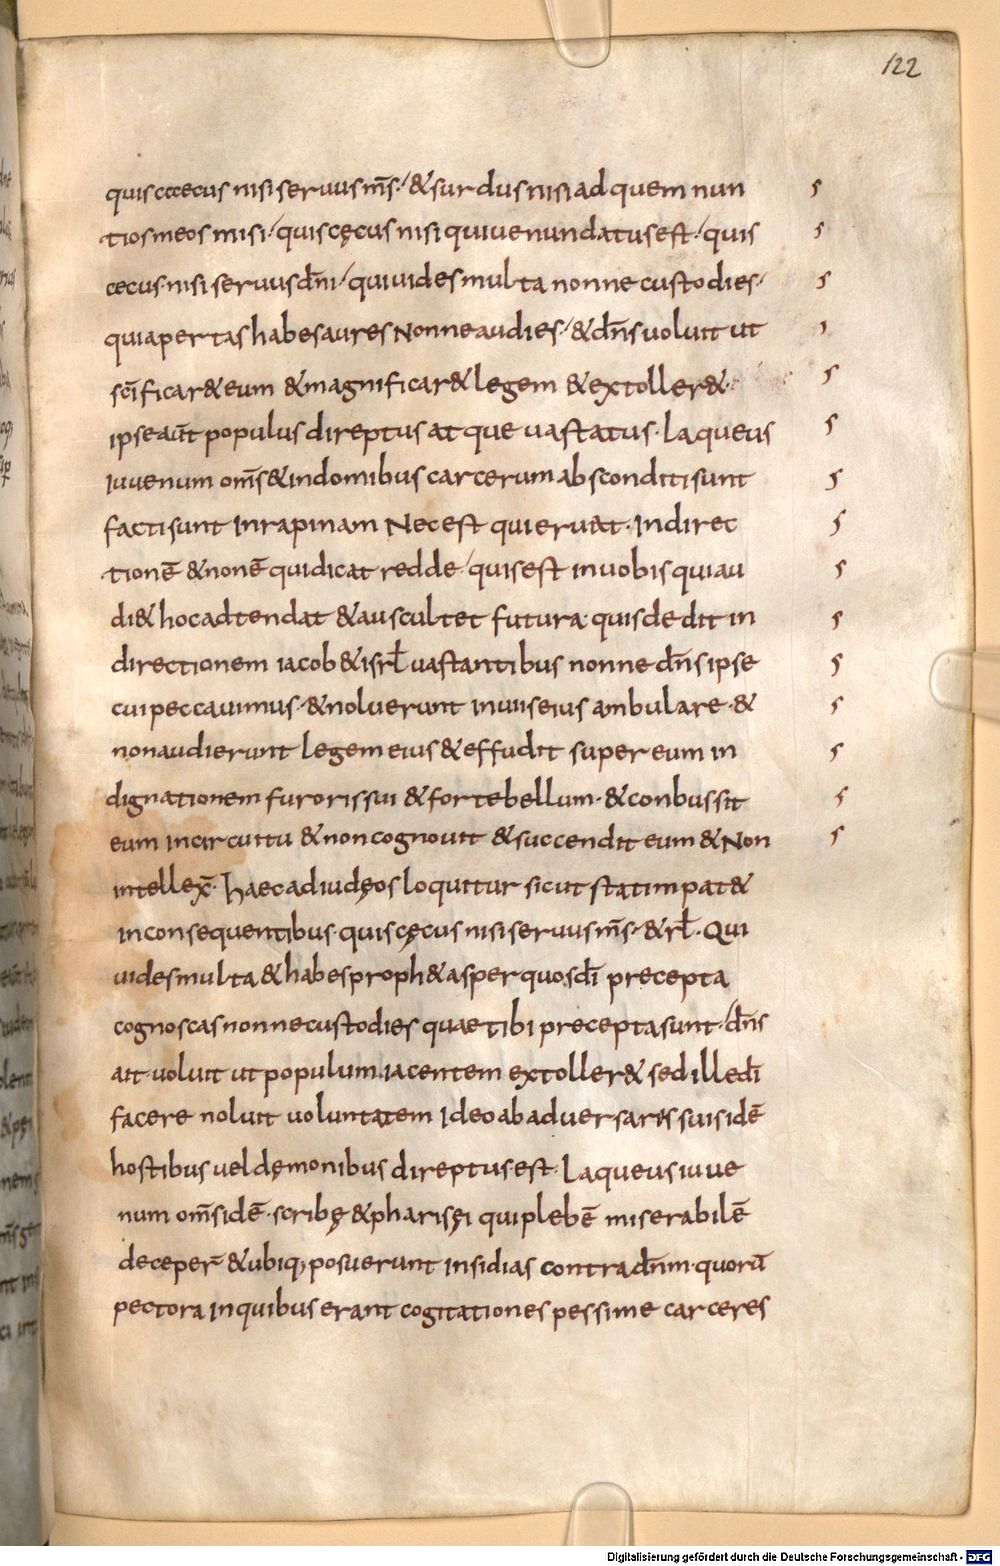 122
quis cęcus nisi seruus m̄s / & surdus nisi ad quem nun
tios meos misi / quis cęcus nisi qui uenundatus est / quis
cecus nisi seruus dn̄i / qui uides multa nonne custodies /
qui apertas habes aures Nonne audies / & dn̄s uoluit ut
sc̄ificar& eum & magnificar& legem & extoller& ·
ipse aūt populus direptus atque uastatus · Laqueus
iuuenum om̄s & in domibus carcerum absconditi sunt
facti sunt in rapinam Nec est qui eruat · in direc
tionē & non ē qui dicat redde / quis est in uobis qui au
di& hoc adtendat & auscultet futura · quis dedit in
directionem iacob & isrł uastantibus nonne dn̄s ipse
cui peccauimus · & noluerunt in uiis eius ambulare · &
non audierunt legem eius & effudit super eum in
dignationem furoris sui & forte bellum · & conbussit
eum in circuitu & non cognouit & succendit eum & Non
intellex̄ · haec ad iudęos loquitur sicut statim pat&
in consequentibus · quis cęcus nisi seruus m̄s · & rł · Qui
uides multa & habes proph&as per quos dī precepta
cognoscas nonne custodies quae tibi precepta sunt · / dn̄s
ait · uoluit ut populum iacentem extoller& sed ille dī
facere noluit uoluntatem Ideo ab aduersariis suis idē
hostibus uel dęmonibus direptus est · Laqueus iuue
num om̄s idē · scribę & pharisęi qui plebē miserabilē
deceper̄ & ubiq; posuerunt insidias contra dn̄m · quorū
pectora in quibus erant cogitationes pessime carceres
Digitalisierung gefördert durch die Deutsche Forschungsgemeinschaft - DFG